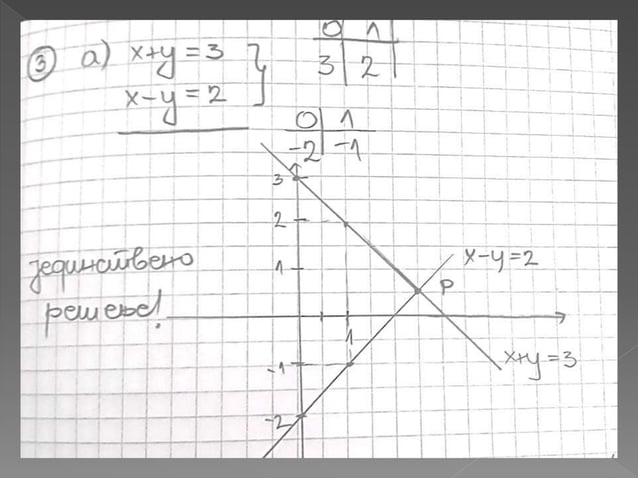 ③ а) x+y=3
x-y=2
0 1
3 2
0 1
-2 -1
3
2
1
1
-1
-2
јединствено
решење!
x-y=2
P
x+y=3